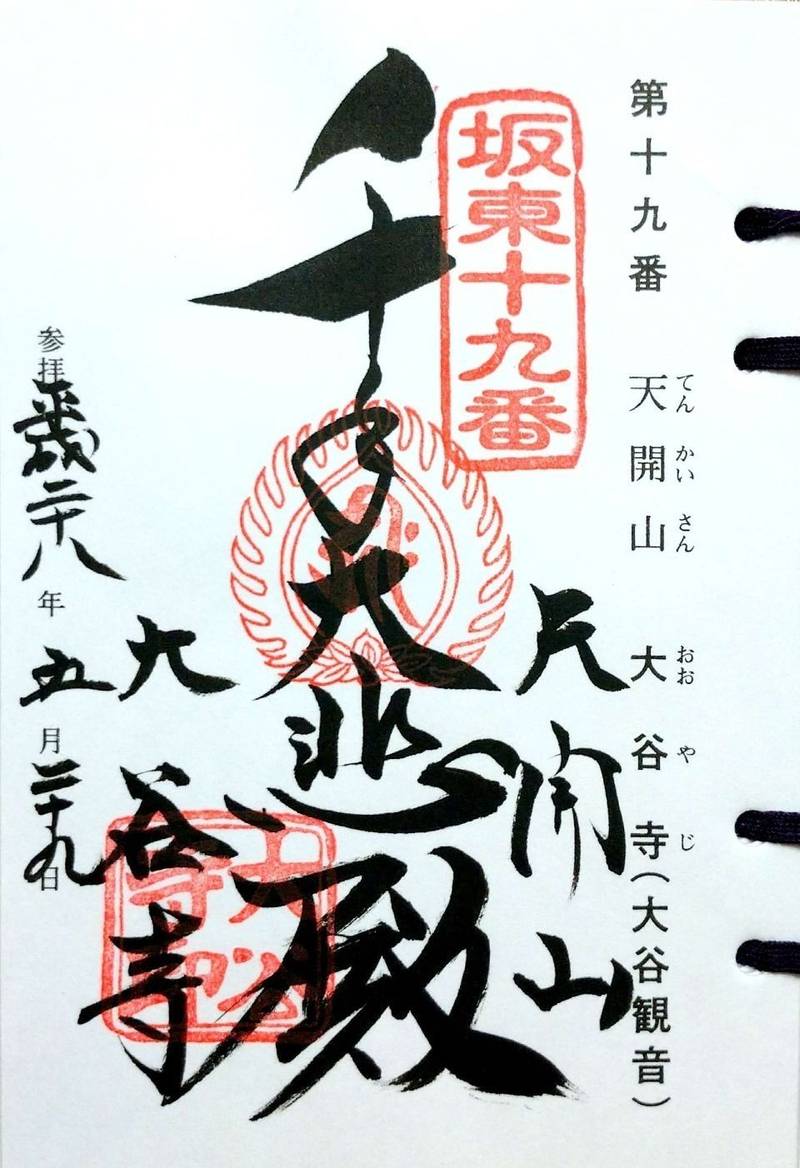 第十九番 天開山 大谷寺(大谷観音)
てんかいさん おおやじ
坂東十九番
天開山
千手大悲殿
大谷寺
大谷寺印
参拝平成二十八年五月二十九日